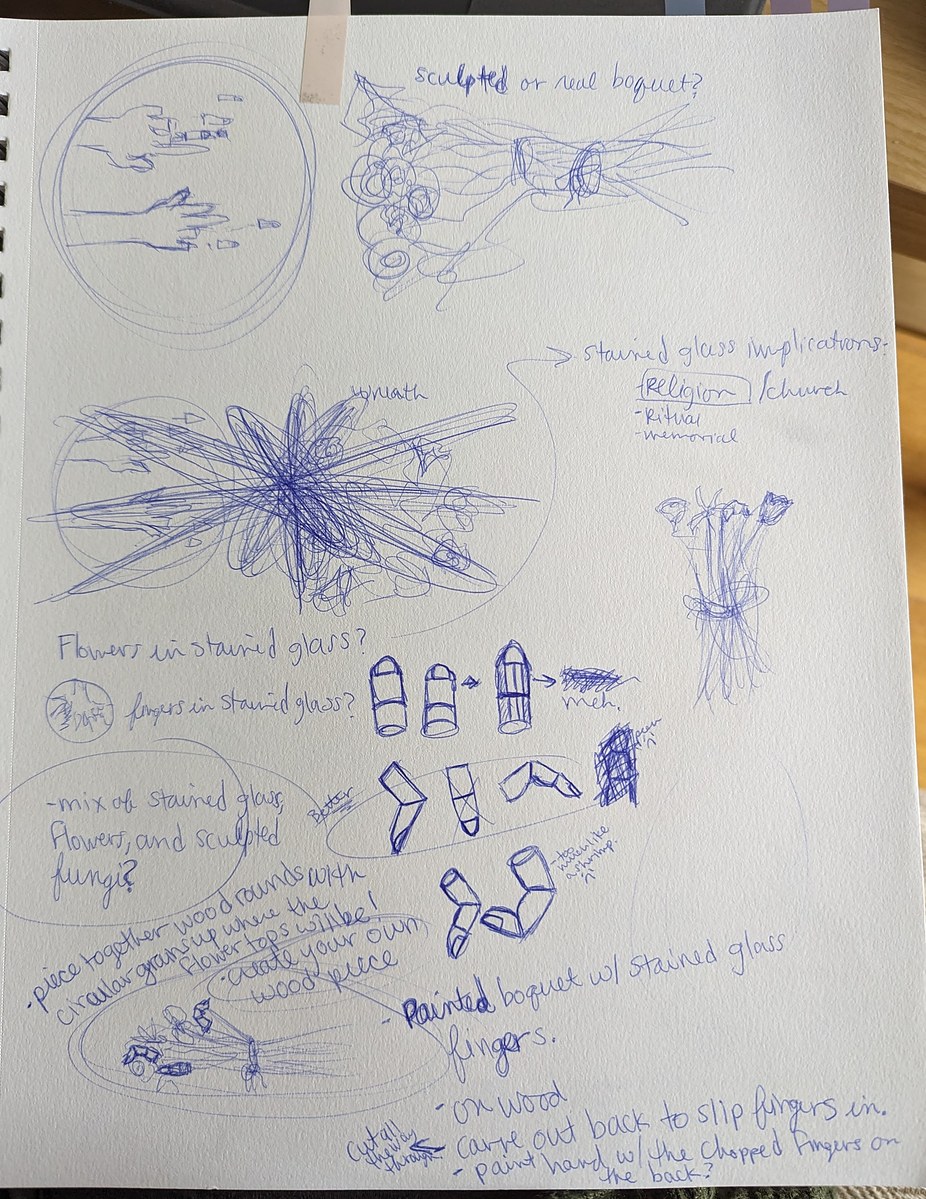 sculpted or real boquet?
stained glass implications.
Religion /church
-Ritual
-memorial
wreath
Flowers in stained glass?
fingers in stained glass?
meh.
Better
-mix of stained glass,
flowers, and sculpted
fungi?
-too
much like
a shrimp.
-piece together wood rounds with
circular grains up where the
flower tops will be!
-create your own
wood piece
-Painted boquet w/ stained glass
fingers.
-on wood
-carve out back to slip fingers in.
cut all
the way
through
-paint hand w/ the chopped fingers on
the back?